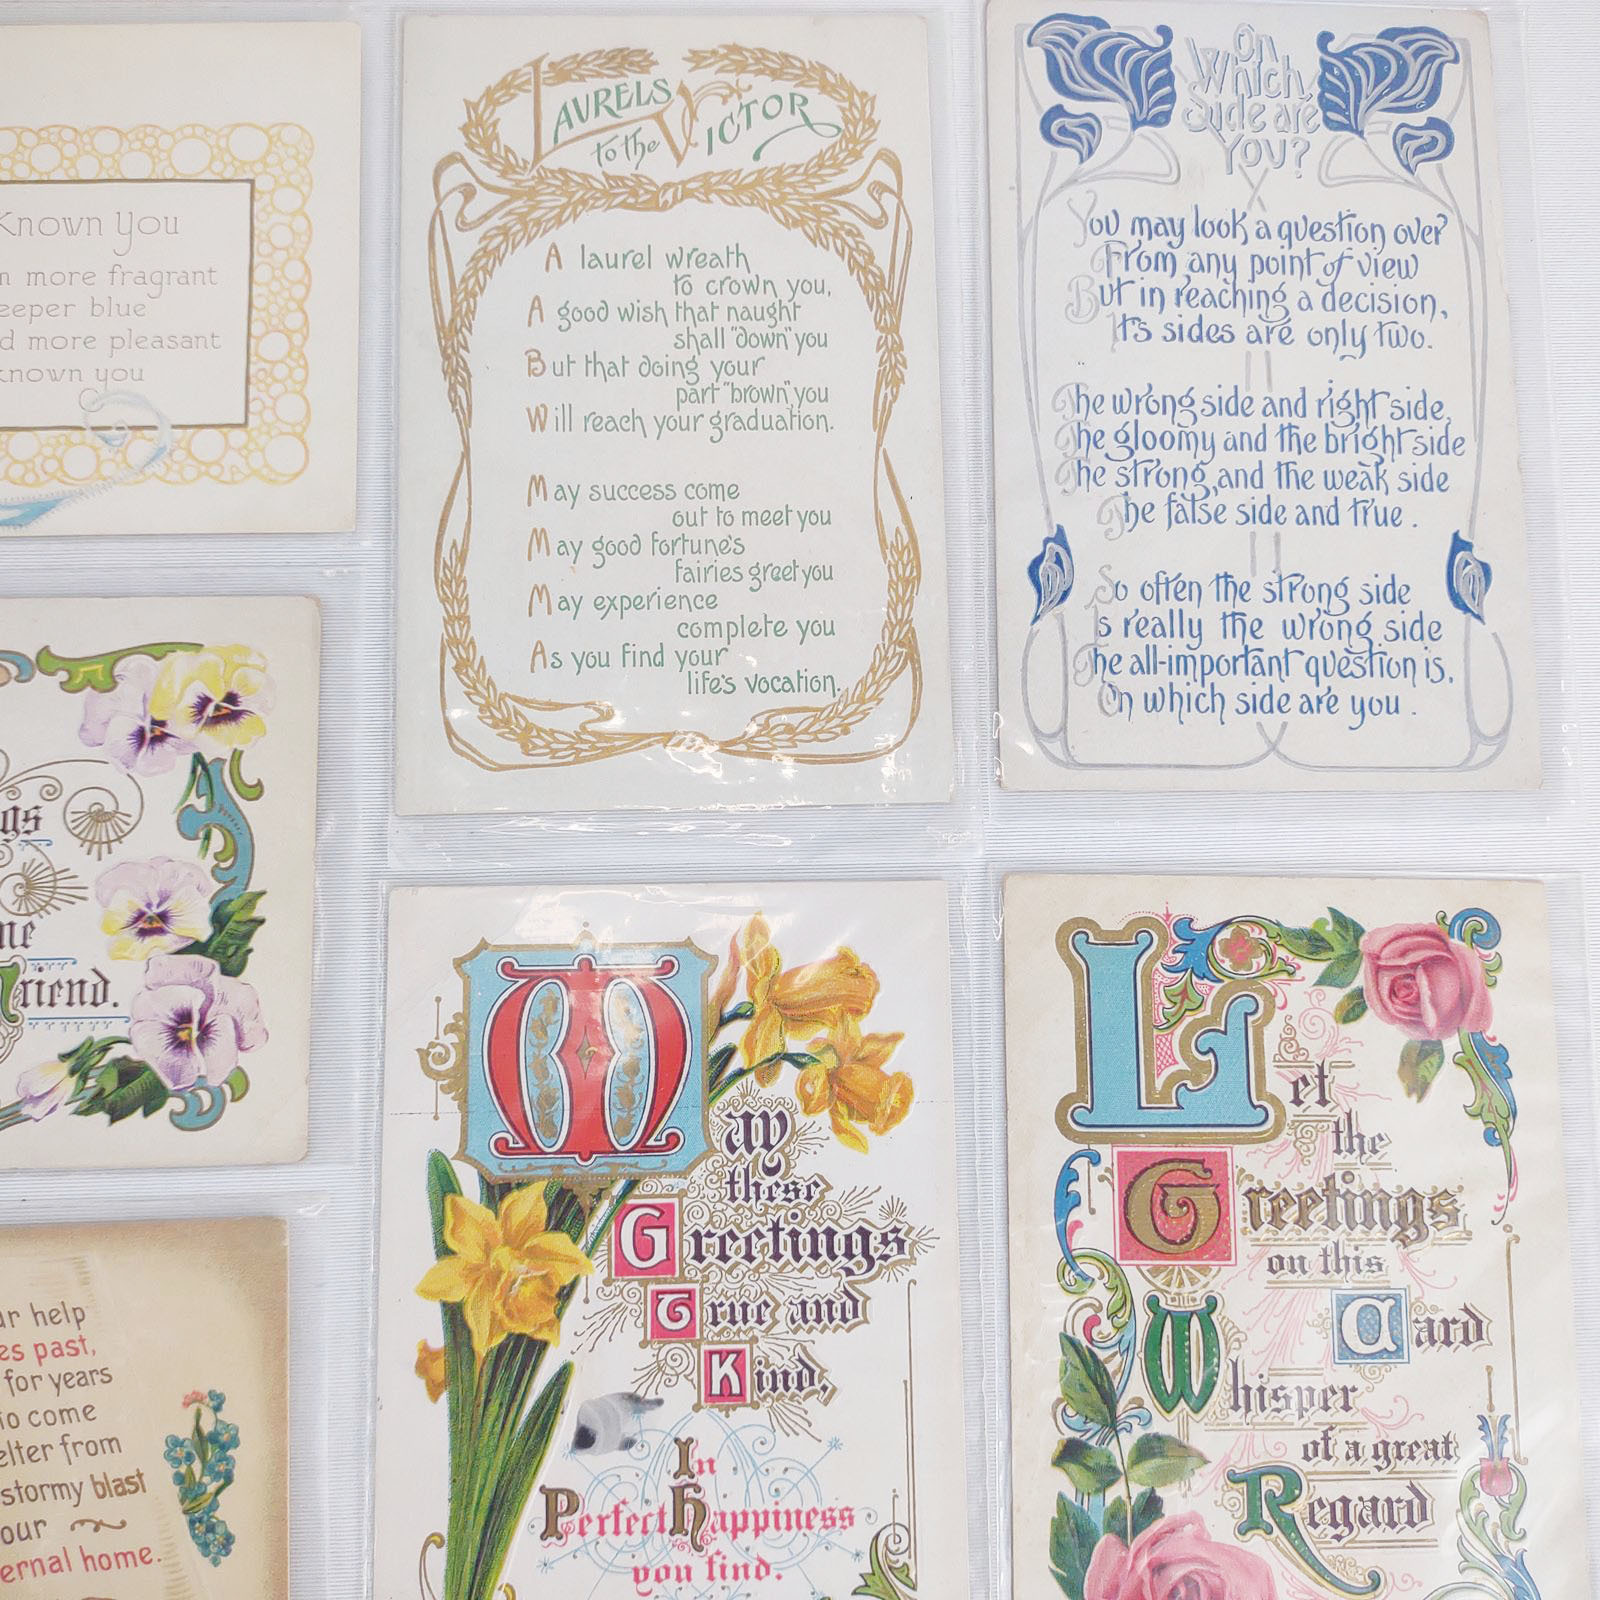 Known You
more fragrant
eeper blue
d more pleasant
known you
LAURELS
to the VICTOR
A laurel wreath
to crown you,
A good wish that naught
shall "down" you
But that doing your
part "brown" you
Will reach your graduation.
May success come
out to meet you
May good fortune's
fairies greet you
May experience
complete you
As you find your
life's vocation.
On
Which
Side are
You?
You may look a question over
From any point of view
But in reaching a decision,
It's sides are only two.
The wrong side and right side,
The gloomy and the bright side
The strong, and the weak side
The false side and true.
So often the strong side
Is really the wrong side
The all-important question is,
On which side are you.
gs
me
Friend.
ur help
es past,
for years
to come
elter from
stormy blast
our
ernal home.
May
these
Greetings
True and
Kind,
In
Perfect Happiness
you find.
Let
the
Greetings
on this
Card
Whisper
of a great
Regard